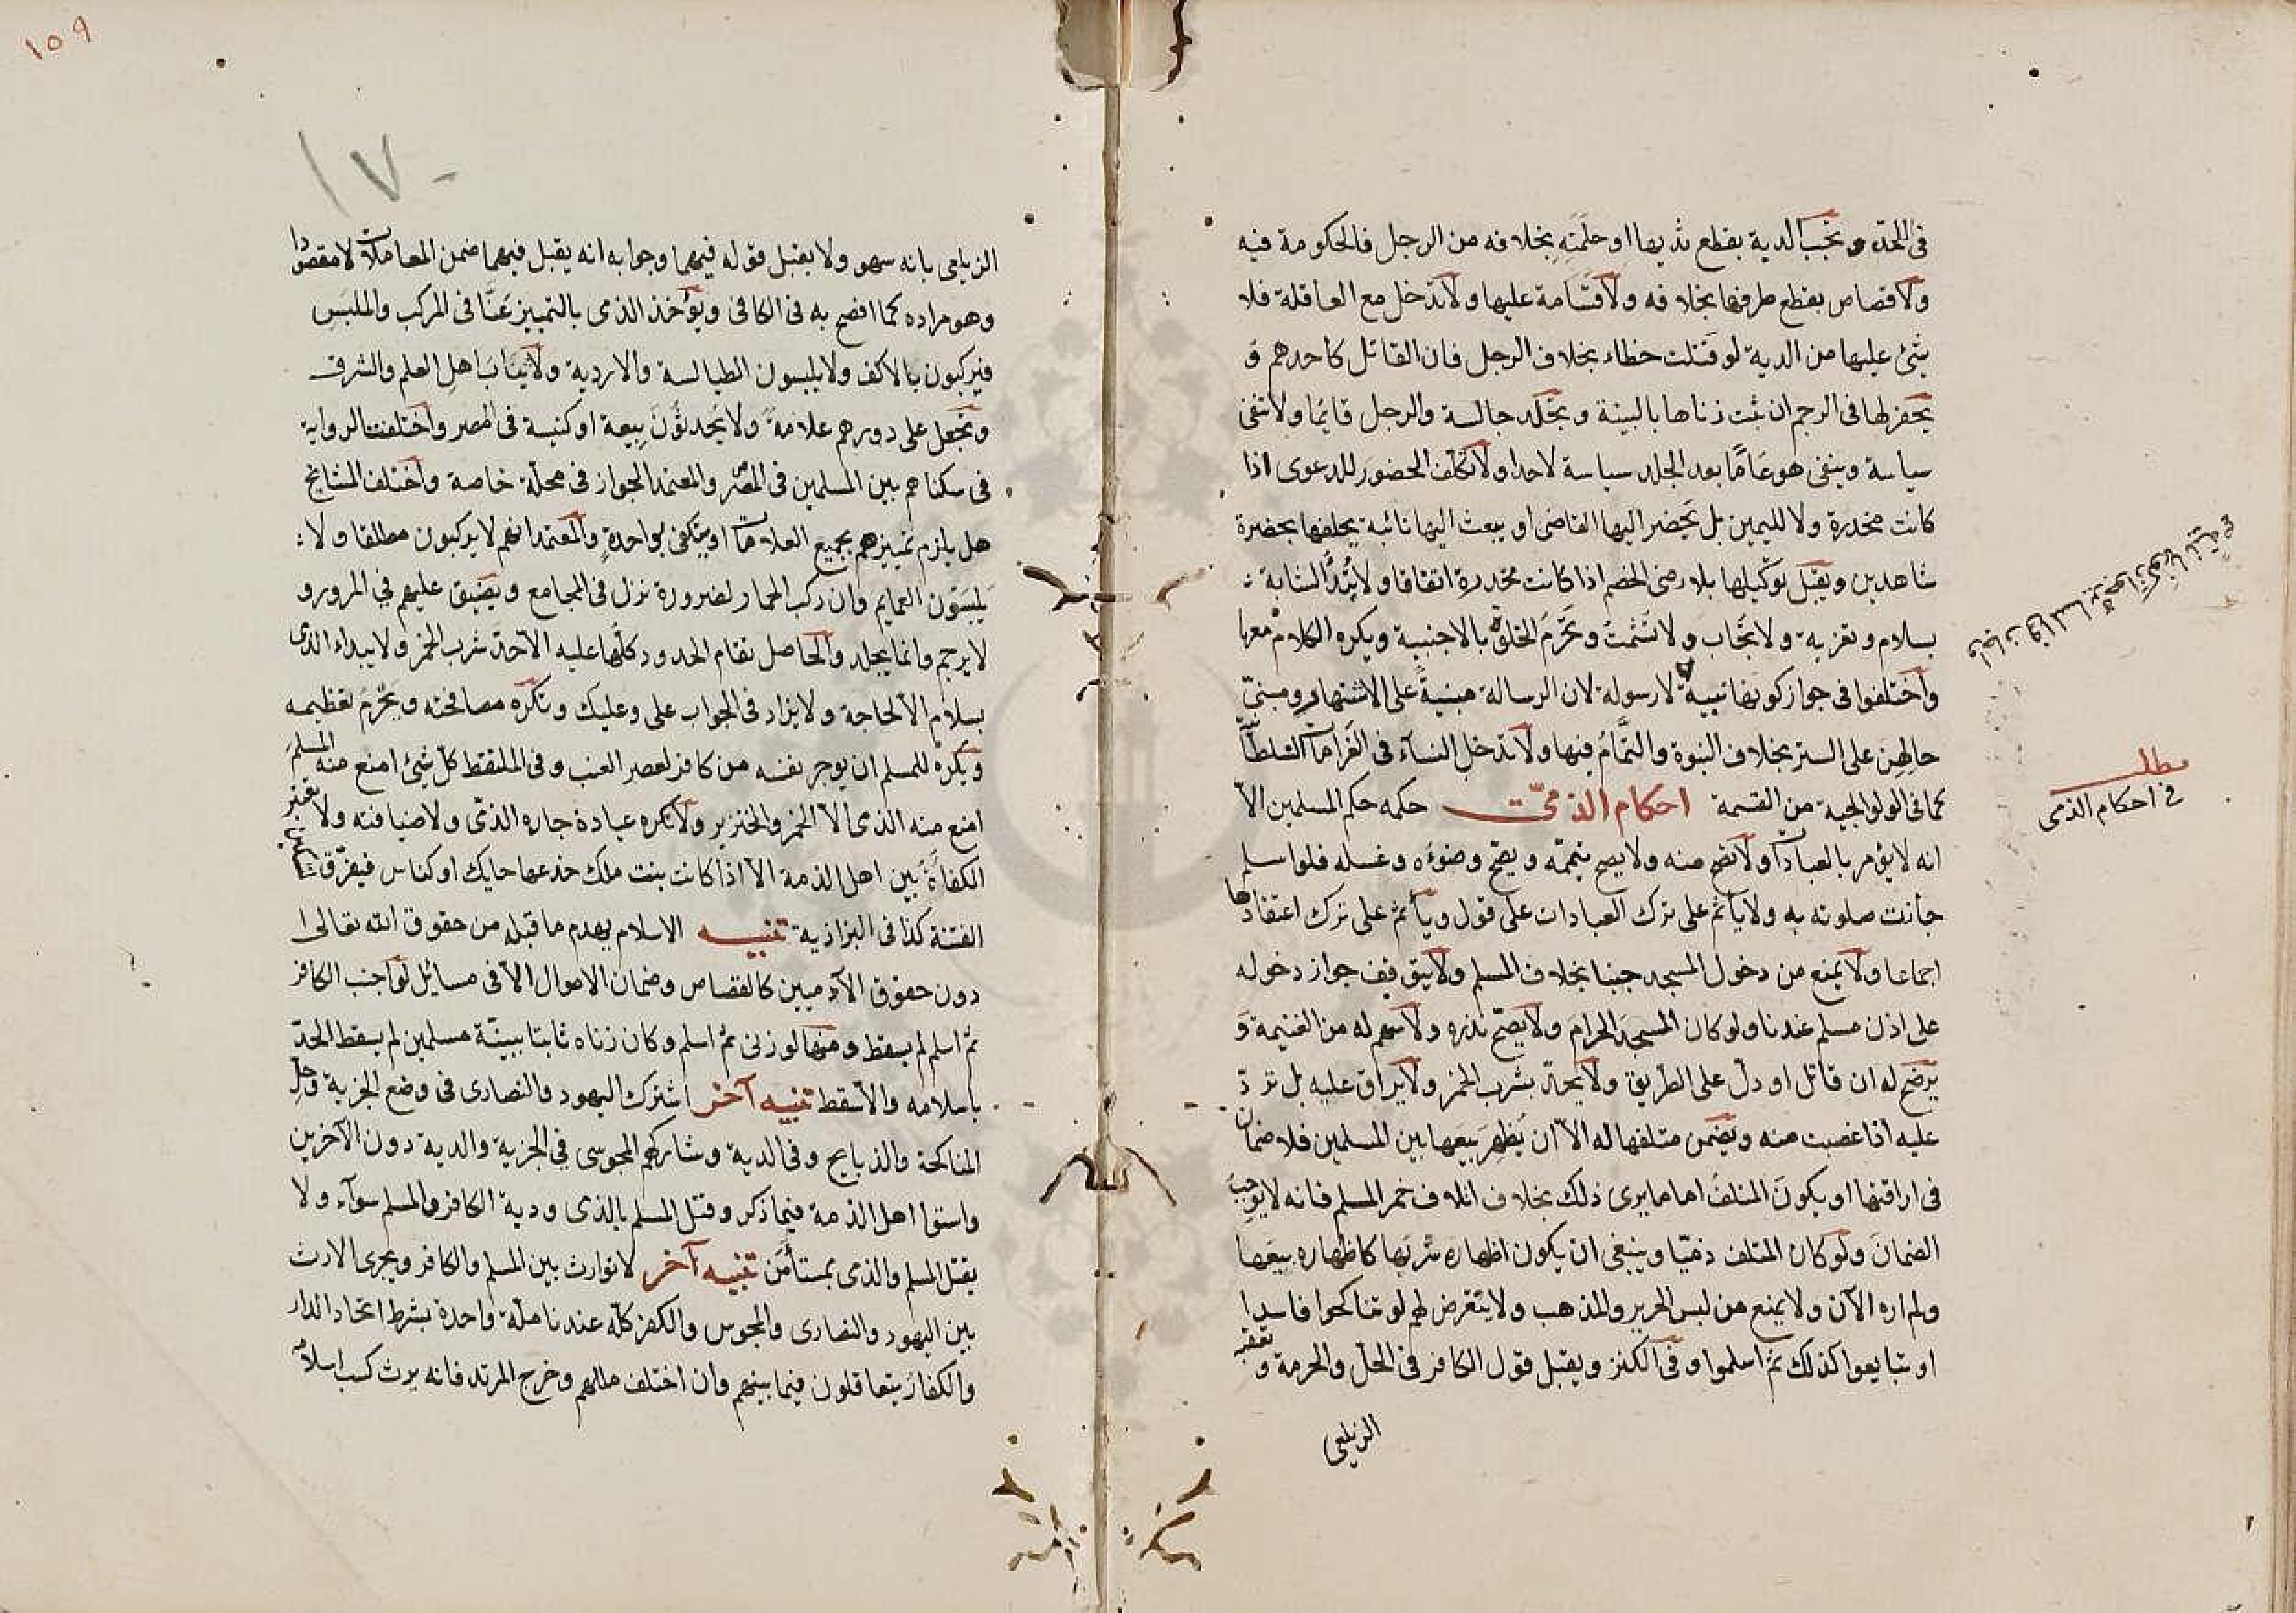 فى اللحد وتجب الدية بقطع ثديها او حلمته بخلافه من الرجل فالحكومة فيه
ولا قصاص بقطع طرفها بخلافه ولا قسامة عليها ولا تدخل مع العاقلة فلا
شئ عليها من الدية لو قتلت خطاء بخلاف الرجل فان القاتل كاحدهم و
يحفر لها فى الرجم ان ثبت زناها بالبينة وتجلد جالسة والرجل قايما ولا تنفى
سياسة وينفى هو عاما بعد الجلد سياسة لا حدا ولا تكلف الحضور للدعوى اذا
كانت مخدرة ولا لليمين بل يحضر اليها القاضى او يبعث اليها نائبه يحلفها بحضرة
شاهدين ويقبل توكيلها بلا رضى الخصم اذا كانت مخدرة اتفاقا ولا تبدأ الشابة
بسلام وتعزية ولا تجاب ولا تشمت وتحرم الخلوة بالاجنبية ويكره الكلام معها
واختلفوا فى جواز كونها نبية لا رسولة لان الرسالة مبنية على الاشتهار ومبنى
حالهن على الستر بخلاف النبوة والتمام فيها ولا تدخل النساء فى الغرامات السلطانية
كما فى الولوالجية من القسمة احكام الذمى حكمه حكم المسلمين الا
انه لا يؤمر بالعبادات ولا تصح منه ولا يصح تيممه ويصح وضوءه وغسله فلو اسلم
جازت صلوته به ولا يأثم على ترك العبادات على قول ويأثم على ترك اعتقادها
اجماعا ولا يمنع من دخول المسجد جنبا بخلاف المسلم ولا يتوقف جواز دخوله
على اذن مسلم عندنا ولو كان المسجد الحرام ولا يصح نذره ولا سهم له من الغنيمة و
يرضخ له ان قاتل او دل على الطريق ولا يحد بشرب الخمر ولا يراق عليه بل ترد
عليه اذا غصبت منه ويضمن متلفها له الا ان يظهر بيعها بين المسلمين فلا ضمان
فى اراقتها او يكون المتلف اماما يرى ذلك بخلاف اتلاف خمر المسلم فانه لا يوجب
الضمان ولو كان المتلف ذميا وينبغى ان يكون اظهاره شربها كاظهاره بيعها
ولم اره الآن ولا يمنع من لبس الحرير والذهب ولا يتعرض لهم لو تناكحوا فاسدا
او تبايعوا كذلك ثم اسلموا وفى الكنز ويقبل قول الكافر فى الحل والحرمة و تعقبه
الزيلعى
مطلب
فى احكام الذمى
١٥٩
١٧٠
الزيلعى بانه سهو ولا يقبل قوله فيهما وجوابه انه يقبل فيهما ضمن المعاملات لا مقصودا
وهو مراده كما افصح به فى الكافى ويؤخذ الذمى بالتمييز عنا فى المركب والملبس
فيركبون بالاكف ولا يلبسون الطيالسة والاردية ولا ثياب اهل العلم والشرف
وتجعل على دورهم علامة ولا يحدثون بيعة او كنيسة فى المصر واختلفت الرواية
فى سكناهم بين المسلمين فى المصر والمعتمد الجواز فى محلة خاصة واختلف المشايخ
هل يلزم تمييزهم بجميع العلامات او يكتفى بواحدة والمعتمد انهم لا يركبون مطلقا ولا
يلبسون العمايم وان ركب الحمار لضرورة نزل فى المجامع ويضيق عليهم فى المرور و
لا يرجم وانما يجلد والحاصل تقام الحدود كلها عليه الا حد شرب الخمر ولا يبداء الذمى
بسلام الا لحاجة ولا يزاد فى الجواب على وعليك وتكره مصافحته ويحرم تعظيمه
ويكره للمسلم ان يوجر نفسه من كافر لعصر العنب وفى الملتقط كل شئ امنع منه المسلم
امنع منه الذمى الا الخمر والخنزير ولا تكره عيادة جاره الذمى ولا ضيافته ولا تعتبر
الكفاءة بين اهل الذمة الا اذا كانت بنت ملك خدعها حايك او كناس فيفرق
الفتنة كذا فى البزازية تنبيه الاسلام يهدم ما قبله من حقوق الله تعالى
دون حقوق الآدميين كالقصاص وضمان الاموال الا فى مسايل لو اجنب الكافر
ثم اسلم لم يسقط ومنها لو زنى ثم اسلم وكان زناه ثابتا ببينة مسلمين لم يسقط الحد
باسلامه والا سقط تنبيه آخر اشترك اليهود والنصارى فى وضع الجزية وحل
المناكحة والذبايح وفى الدية وشاركهم المجوسى فى الجزية والدية دون الآخرين
واستوا اهل الذمة فيما ذكر وقتل المسلم بالذمى ودية الكافر والمسلم سوآء ولا
يقتل المسلم والذمى بمستأمن تنبيه آخر لا توارث بين المسلم والكافر ويجرى الارث
بين اليهود والنصارى والمجوس والكفر كله عندنا ملة واحدة بشرط اتحاد الدار
والكفار يتعاقلون فيما بينهم وان اختلف مللهم وخرج المرتد فانه يرث كسب اسلامه